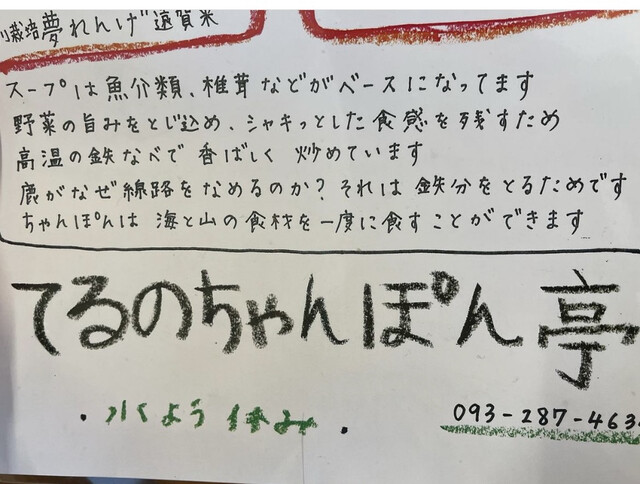 栽培夢れんげ遠賀米
スープは魚介類、椎茸などがベースになってます
野菜の旨みをとじ込め、シャキッとした食感を残すため
高温の鉄なべで香ばしく炒めています
鹿がなぜ線路をなめるのか?それは鉄分をとるためです
ちゃんぽんは海と山の食材を一度に食すことができます
てるのちゃんぽん亭
・水くよう休み・
093-287-463